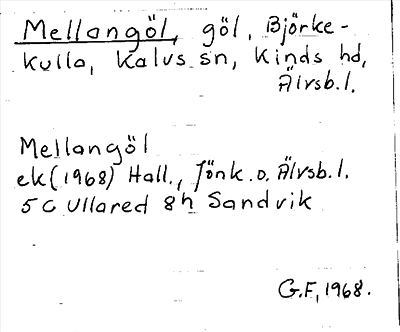 Mellangöl, göl, Björke-
kulla, Kalvs sn, Kinds hd,
Älvsb. l.
Mellangöl
ek (1968) Hall., Jönk. o. Älvsb. l.
5 C Ullared 8h Sandvik
G.F, 1968.